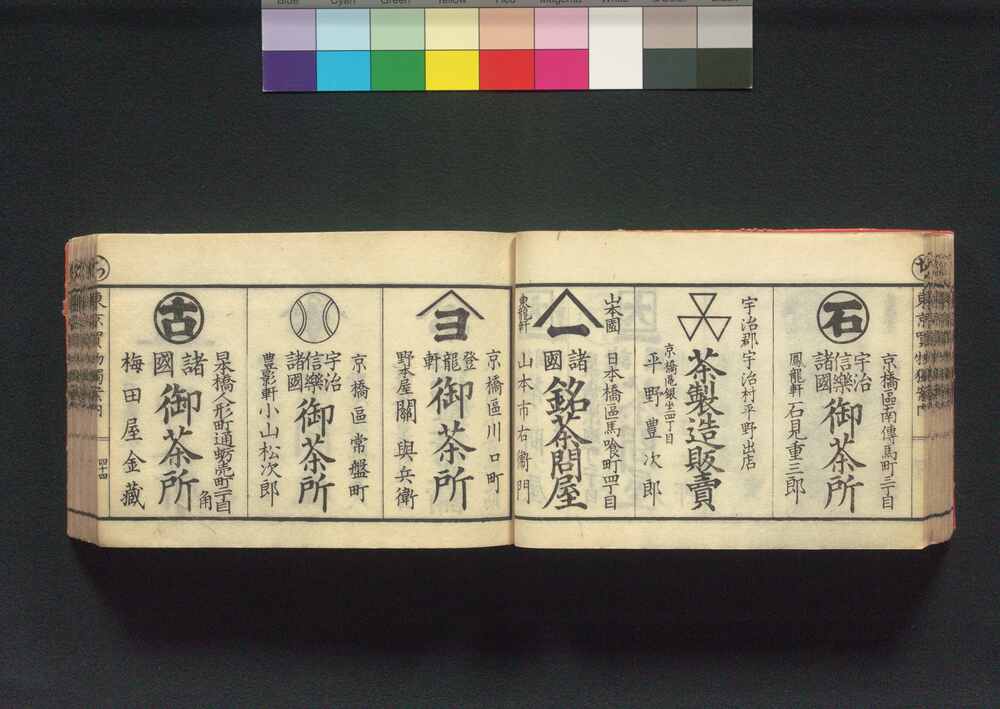 石
京橋區南傳馬町三丁目
宇治
信樂
諸國
御茶所
鳳龍軒 石見重三郎
宇治郡宇治村平野出店
茶製造販賣
京橋區銀坐四丁目
平野豊次郎
一
山本國
日本橋區馬喰町四丁目
諸國
銘茶問屋
東龍軒
山本市右衞門
ヨ
京橋區川口町
登龍軒
御茶所
野本屋 關與兵衞
京橋區常盤町
宇治
信樂
諸國
御茶所
豊影軒 小山松次郎
古
日本橋人形町通蛎売町一丁目
角
諸國
御茶所
梅田屋金藏
東京買物獨案内
四十四